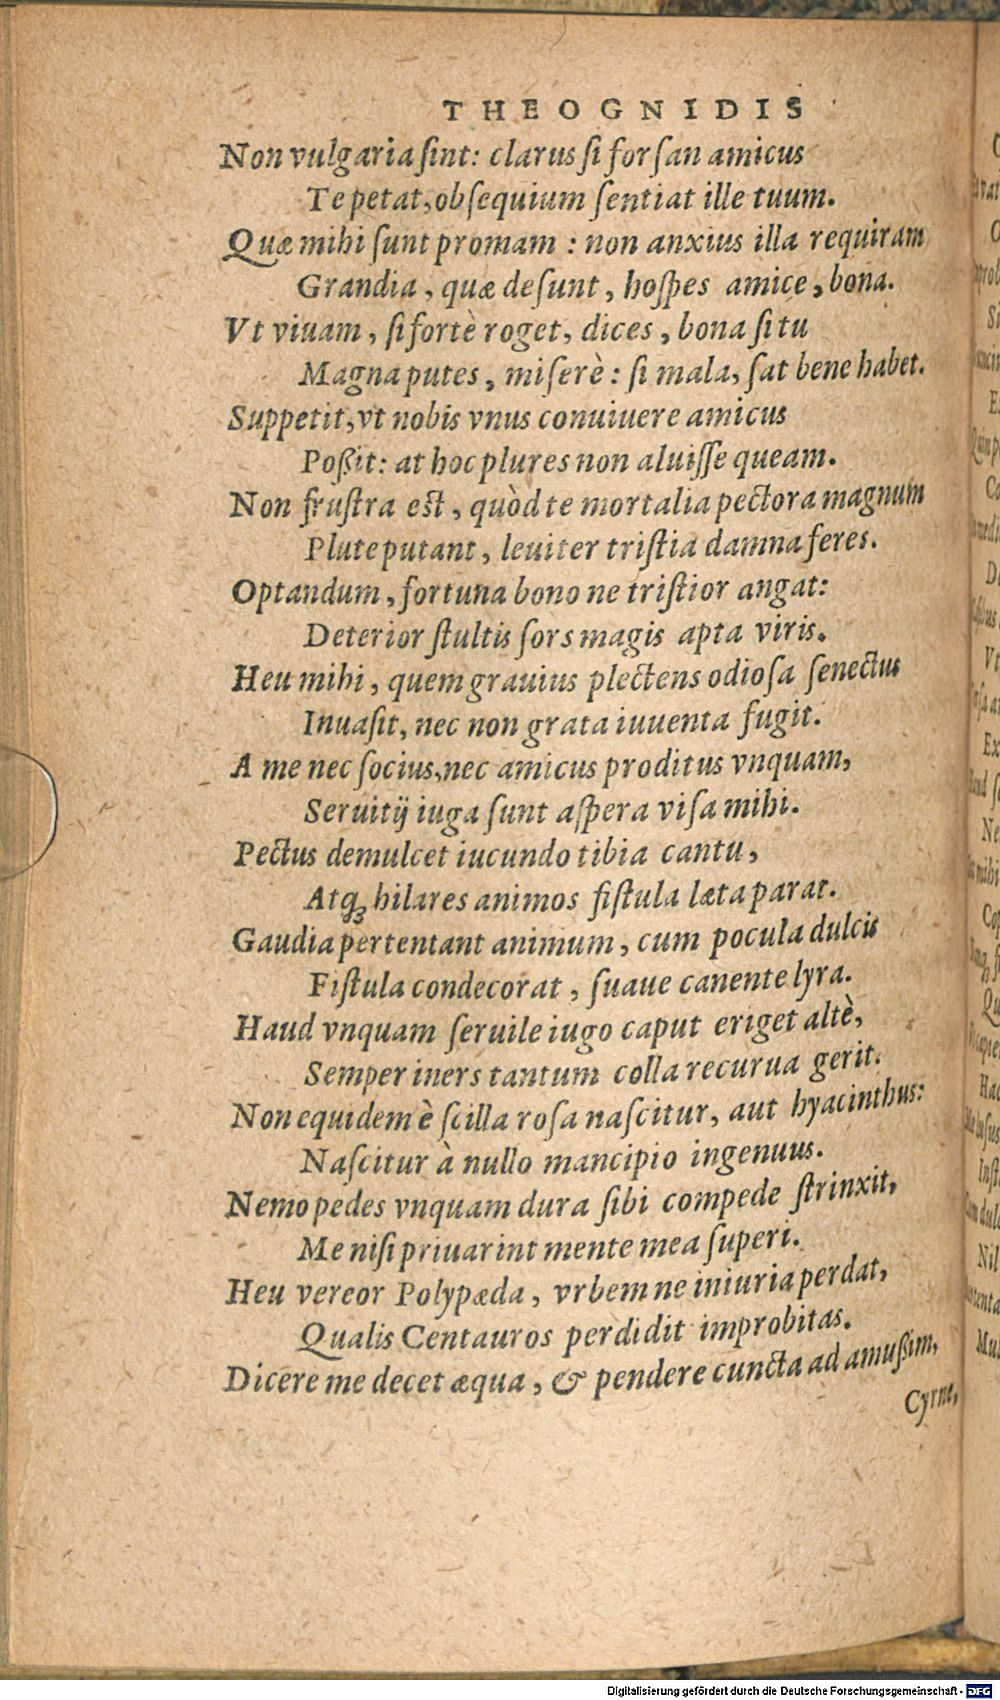 THEOGNIDIS
Non vulgaria ſint: clarus ſi forſan amicus
Te petat, obſequium ſentiat ille tuum.
Quæ mihi ſunt promam: non anxius illa requiram
Grandia, quæ deſunt, hoſpes amice, bona.
Vt viuam, ſi fortè roget, dices, bona ſi tu
Magna putes, miſerè: ſi mala, ſat bene habet.
Suppetit, vt nobis vnus conuiuere amicus
Poßit: at hoc plures non aluiſſe queam.
Non fruſtra est, quòd te mortalia pectora magnum
Plute putant, leuiter triſtia damna feres.
Optandum, fortuna bono ne triſtior angat:
Deterior ſtultis ſors magis apta viris.
Heu mihi, quem grauius plectens odioſa ſenectus
Inuaſit, nec non grata iuuenta fugit.
A me nec ſocius, nec amicus proditus vnquam,
Seruitij iuga ſunt aſpera viſa mihi.
Pectus demulcet iucundo tibia cantu,
Atqꝫ hilares animos fiſtula læta parat.
Gaudia pertentant animum, cum pocula dulcis
Fiſtula condecorat, ſuaue canente lyra.
Haud vnquam ſeruile iugo caput eriget altè,
Semper iners tantum colla recurua gerit.
Non equidem è ſcilla roſa naſcitur, aut hyacinthus:
Naſcitur à nullo mancipio ingenuus.
Nemo pedes vnquam dura ſibi compede ſtrinxit,
Me niſi priuarint mente mea ſuperi.
Heu vereor Polypæda, vrbem ne iniuria perdat,
Qualis Centauros perdidit improbitas.
Dicere me decet æqua, & pendere cuncta ad amußim,
Cyrne,
Digitalisierung gefördert durch die Deutsche Forschungsgemeinschaft - DFG